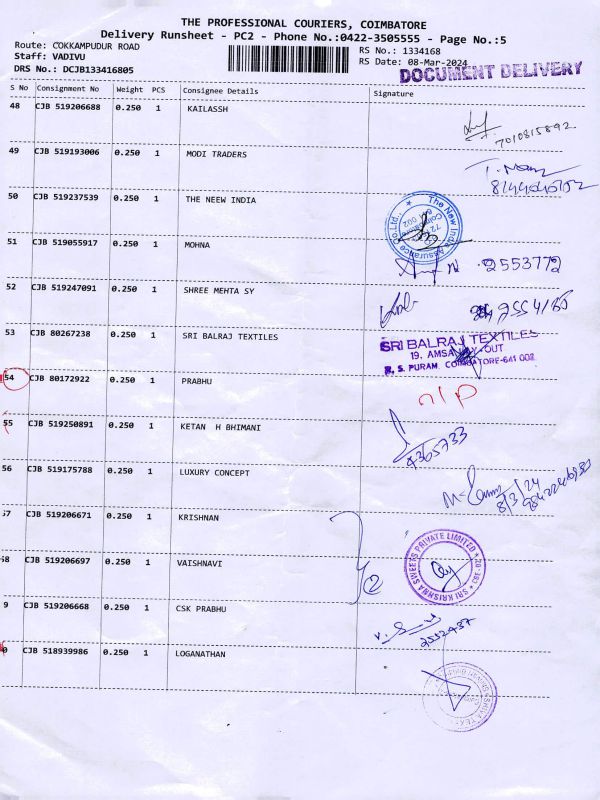 THE PROFESSIONAL COURIERS, COIMBATORE
Delivery Runsheet - PC2 - Phone No.:0422-3505555 - Page No.:5
Route: COKKAMPUDUR ROAD
Staff: VADIVU
DRS No.: DCJB133416805
RS No.: 1334168
RS Date: 08-Mar-2024
DOCUMENT DELIVERY
S No Consignment No Weight PCS Consignee Details Signature
48 CJB 519206688 0.250 1 KAILASSH
7010815892
49 CJB 519193006 0.250 1 MODI TRADERS
50 CJB 519237539 0.250 1 THE NEEW INDIA
The New India Assurance Co.Ltd.,
51 CJB 519055917 0.250 1 MOHNA
2553772
52 CJB 519247091 0.250 1 SHREE MEHTA SY
53 CJB 80267238 0.250 1 SRI BALRAJ TEXTILES
SRI BALRAJ TEXTILES
R. S. PURAM, COIMBATORE-641 002
54 CJB 80172922 0.250 1 PRABHU
n/p
55 CJB 519250891 0.250 1 KETAN H BHIMANI
4365733
56 CJB 519175788 0.250 1 LUXURY CONCEPT
8/3/24
57 CJB 519206671 0.250 1 KRISHNAN
2
SRI KRISHNA SWEETS PRIVATE LIMITED
58 CJB 519206697 0.250 1 VAISHNAVI
9 CJB 519206668 0.250 1 CSK PRABHU
0 CJB 518939986 0.250 1 LOGANATHAN